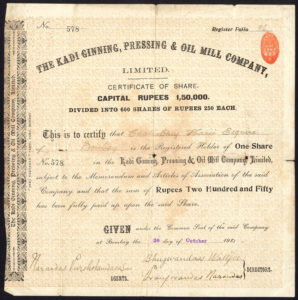 No. 578
Register Folio
THE KADI GINNING, PRESSING & OIL MILL COMPANY,
LIMITED.
CERTIFICATE OF SHARE.
CAPITAL RUPEES 1,50,000.
DIVIDED INTO 600 SHARES OF RUPEES 250 EACH.
This is to certify that
of Bombay is the Registered Holder of One Share
No. 578 in the Kadi Ginning, Pressing & Oil Mill Company Limited,
subject to the Memorandum and Articles of Association of the said
Company and that the sum of Rupees Two Hundred and Fifty
has been fully paid up upon the said Share.
GIVEN under the Common Seal of the said Company
at Bombay the 26 day of October
AGENTS.
DIRECTORS.
The Kadi Ginning, Pressing & Oil Mill Company, Limited.